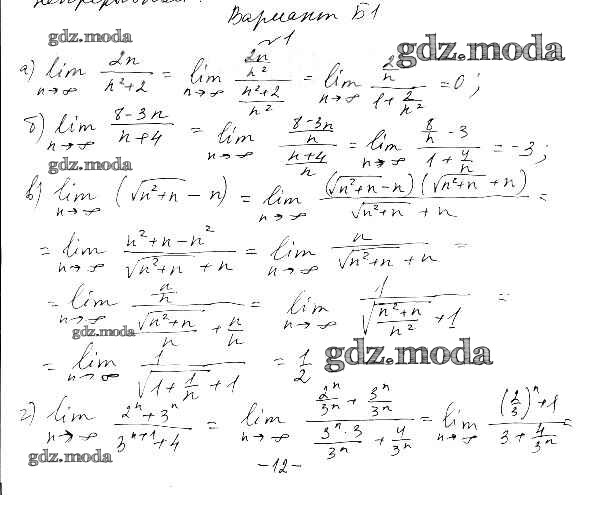 Вариант Б1
gdz.moda
№1
gdz.moda
а) lim n→∞ 2n/(n²+2) = lim n→∞ (2n/n²)/((n²+2)/n²) = lim n→∞ (2/n)/(1+2/n²) = 0;
б) lim n→∞ (8-3n)/(n+4) = lim n→∞ ((8-3n)/n)/((n+4)/n) = lim n→∞ (8/n - 3)/(1+4/n) = -3;
gdz.moda
в) lim n→∞ (√(n²+n) - n) = lim n→∞ (√(n²+n) - n)(√(n²+n) + n)/(√(n²+n) + n) =
= lim n→∞ (n²+n-n²)/(√(n²+n) + n) = lim n→∞ n/(√(n²+n) + n) =
= lim n→∞ (n/n)/(√(n²+n)/n + n/n) = lim n→∞ 1/(√((n²+n)/n²) + 1) =
gdz.moda
= lim n→∞ 1/(√(1+1/n) + 1) = 1/2
gdz.moda
г) lim n→∞ (2ⁿ+3ⁿ)/(3ⁿ⁺¹+4) = lim n→∞ (2ⁿ/3ⁿ + 3ⁿ/3ⁿ)/(3ⁿ·3/3ⁿ + 4/3ⁿ) = lim n→∞ ((2/3)ⁿ+1)/(3+4/3ⁿ) =
gdz.moda
-12-